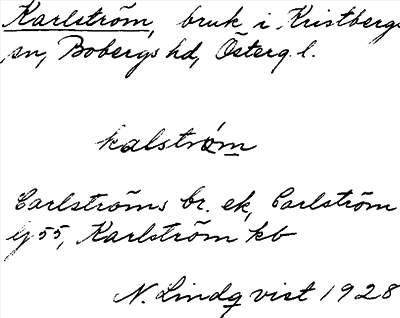 Karlström, bruk i Kristbergs
sn, Bobergs hd, Österg. l.
kalstróm
Carlströms br. ek, Carlström
lj 55, Karlström kb
N. Lindqvist 1928